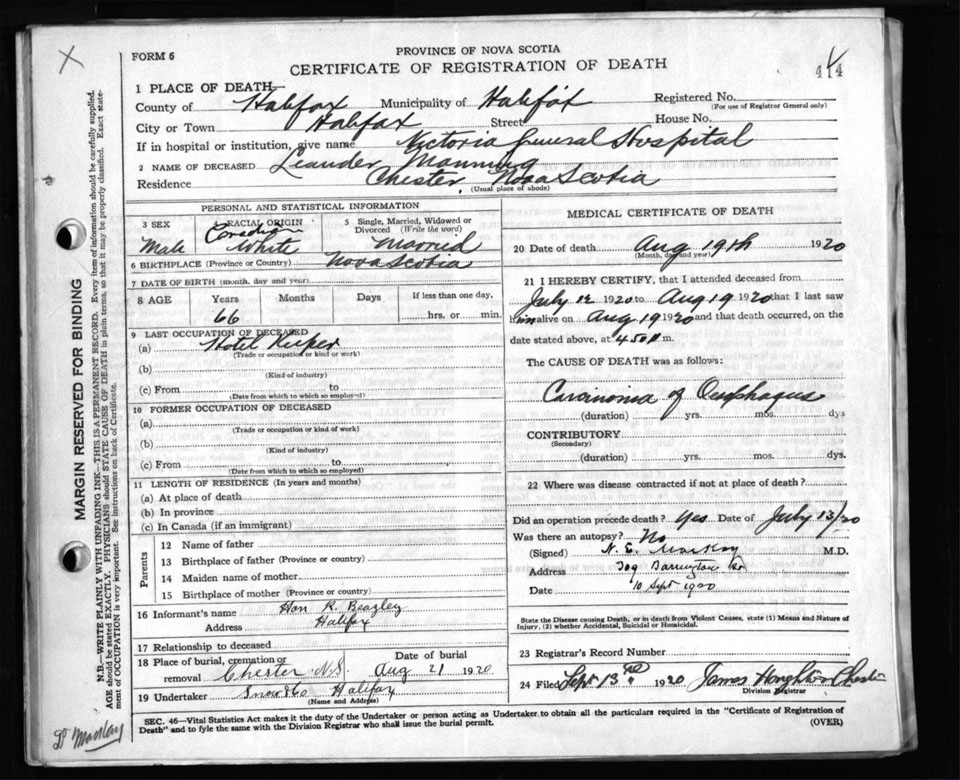 X
FORM 6
PROVINCE OF NOVA SCOTIA
CERTIFICATE OF REGISTRATION OF DEATH
4
444
1 PLACE OF DEATH
County of Halifax Municipality of Halifax Registered No.
(For use of Registrar General only)
City or Town Halifax Street House No.
If in hospital or institution, give name Victoria General Hospital
2 NAME OF DECEASED Leander Manning
Residence Chester Nova Scotia
(Usual place of abode)
PERSONAL AND STATISTICAL INFORMATION
3 SEX Male
4 RACIAL ORIGIN Canadian White
5 Single, Married, Widowed or Divorced (Write the word) Married
6 BIRTHPLACE (Province or Country) Nova Scotia
7 DATE OF BIRTH (month, day and year)
8 AGE Years Months Days If less than one day,
66 hrs. or min.
9 LAST OCCUPATION OF DECEASED
(a) Hotel Keeper
(Trade or occupation or kind or work)
(b)
(Kind of industry)
(c) From to
(Date from which to which so employed)
10 FORMER OCCUPATION OF DECEASED
(a)
(Trade or occupation or kind of work)
(b)
(Kind of industry)
(c) From to
(Date from which to which so employed)
11 LENGTH OF RESIDENCE (In years and months)
(a) At place of death
(b) In province
(c) In Canada (if an immigrant)
Parents
12 Name of father
13 Birthplace of father (Province or country)
14 Maiden name of mother
15 Birthplace of mother (Province or country)
16 Informant's name Hon R. Beazley
Address Halifax
17 Relationship to deceased
18 Place of burial, cremation or removal Chester N.S. Date of burial Aug 21 1920
19 Undertaker Snow &Co Halifax
(Name and Address)
MEDICAL CERTIFICATE OF DEATH
20 Date of death Aug 19th 1920
(Month, day and year)
21 I HEREBY CERTIFY, that I attended deceased from
July 12 1920 to Aug 19 1920 that I last saw
him alive on Aug 19 1920 and that death occurred, on the
date stated above, at 4.50 m.
The CAUSE OF DEATH was as follows:
Carcinoma of Oesophagus
(duration) yrs. mos. dys
CONTRIBUTORY
(Secondary)
(duration) yrs. mos. dys.
22 Where was disease contracted if not at place of death?
Did an operation precede death? Yes Date of July 13/20
Was there an autopsy? No
(Signed) N. E. MacKay M.D.
Address 309 Barrington
Date 10 Sept 1920
State the Disease causing Death, or in death from Violent Causes, state (1) Means and Nature of
Injury, (2) whether Accidental, Suicidal or Homicidal.
23 Registrar's Record Number
24 Filed Sept 13 1920 James Houghton Chester
Division Registrar
SEC. 46—Vital Statistics Act makes it the duty of the Undertaker or person acting as Undertaker to obtain all the particulars required in the "Certificate of Registration of
Death" and to fyle the same with the Division Registrar who shall issue the burial permit. (OVER)
MARGIN RESERVED FOR BINDING
N.B.—WRITE PLAINLY WITH UNFADING INK—THIS IS A PERMANENT RECORD. Every item of information should be carefully supplied.
AGE should be stated EXACTLY. PHYSICIANS should STATE CAUSE OF DEATH in plain terms, so that it may be properly classified. Exact state-
ment of OCCUPATION is very important. See instructions on back of Certificate.
Dr MacKay